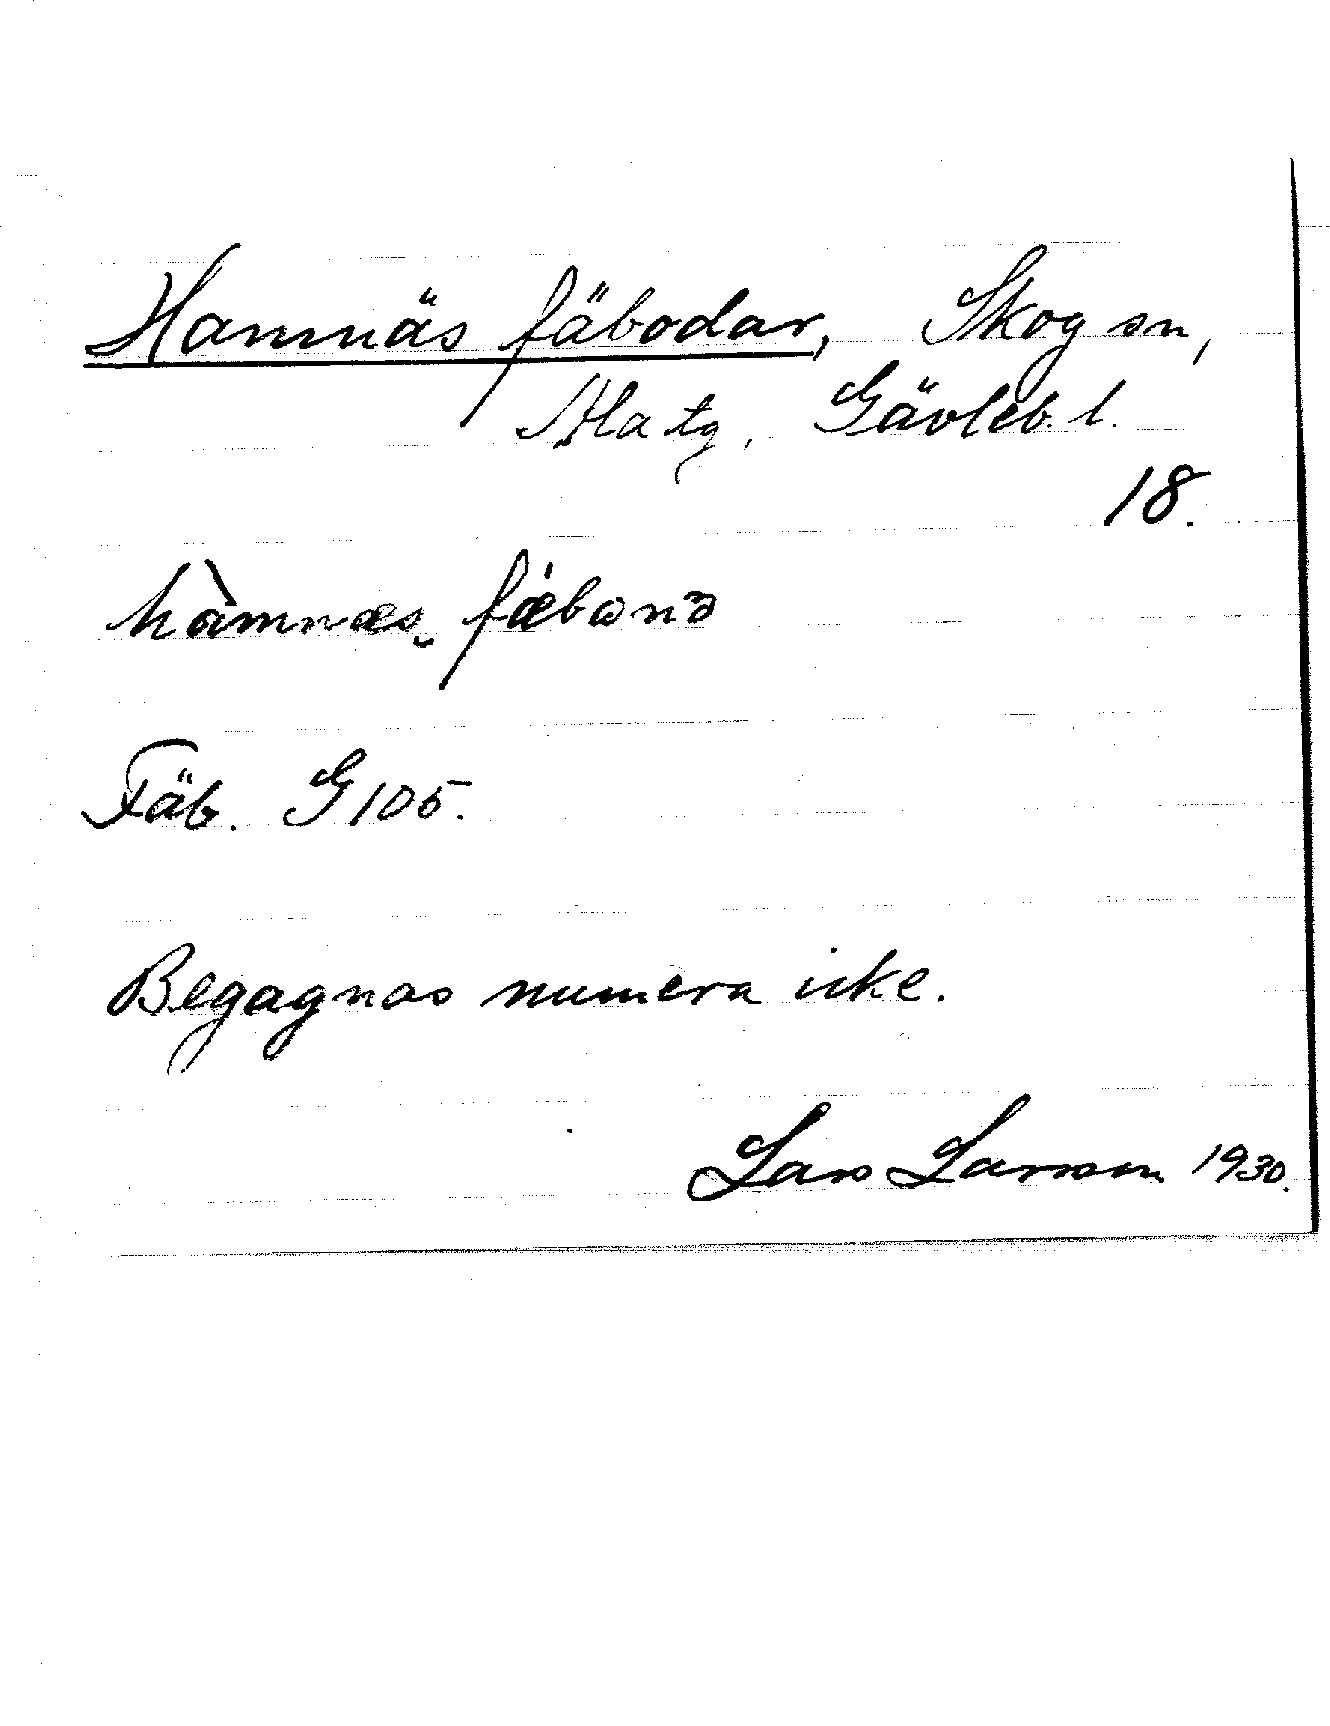 Hamnäs fäbodar, Skog sn,
Ala tg, Gävleb. l.
18.
hàmnæs fæbωnə
Fäb. G 105.
Begagnas numera icke.
Lars Larsson 1930.